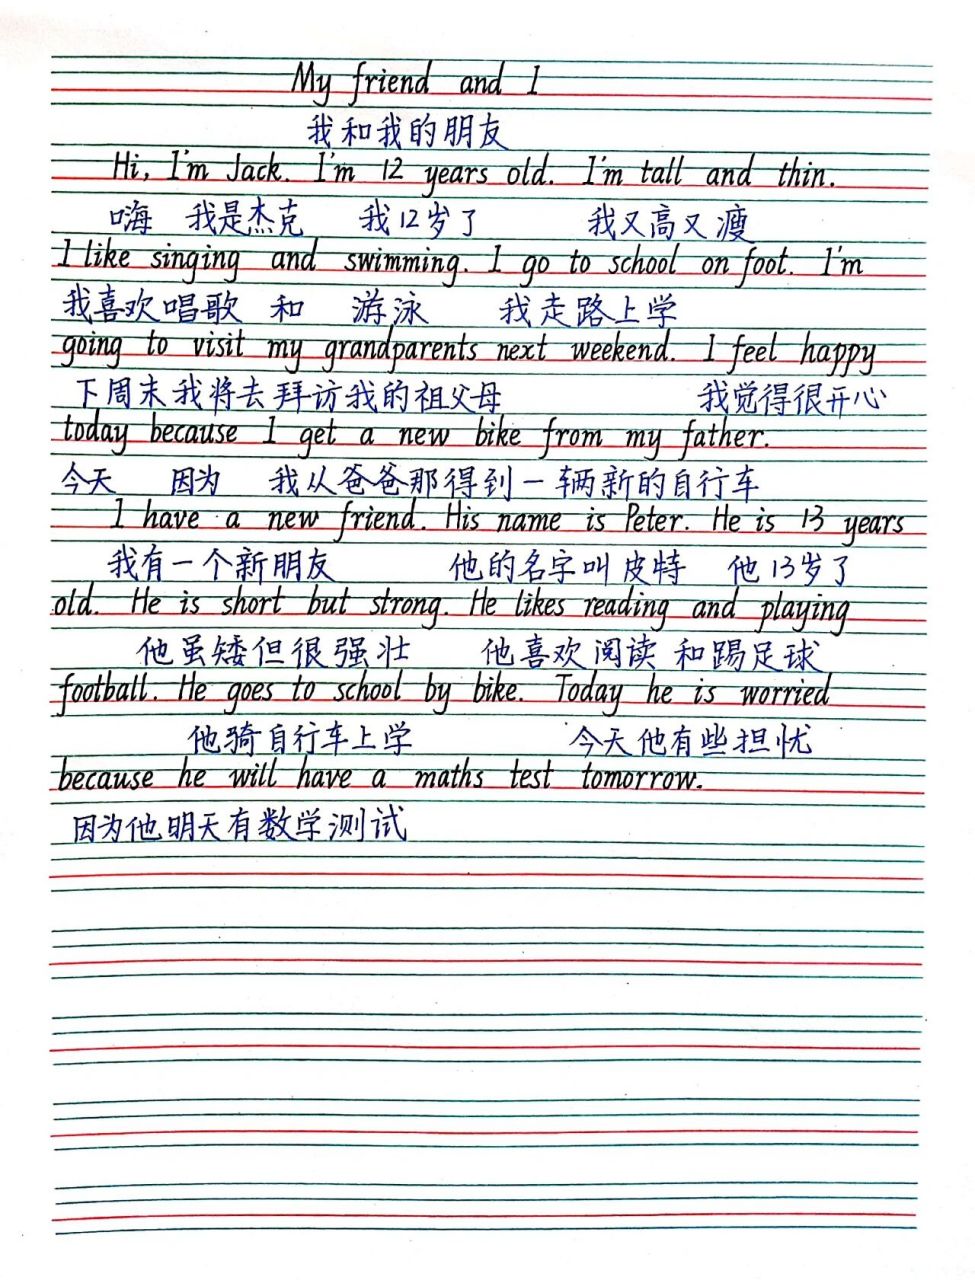 My friend and I
我和我的朋友
Hi, I'm Jack. I'm 12 years old. I'm tall and thin.
嗨 我是杰克 我12岁了 我又高又瘦
I like singing and swimming. I go to school on foot. I'm
我喜欢唱歌 和 游泳 我走路上学
going to visit my grandparents next weekend. I feel happy
下周末我将去拜访我的祖父母 我觉得很开心
today because I get a new bike from my father.
今天 因为 我从爸爸那得到一辆新的自行车
I have a new friend. His name is Peter. He is 13 years
我有一个新朋友 他的名字叫皮特 他13岁了
old. He is short but strong. He likes reading and playing
他虽矮但很强壮 他喜欢阅读和踢足球
football. He goes to school by bike. Today he is worried
他骑自行车上学 今天他有些担忧
because he will have a maths test tomorrow.
因为他明天有数学测试